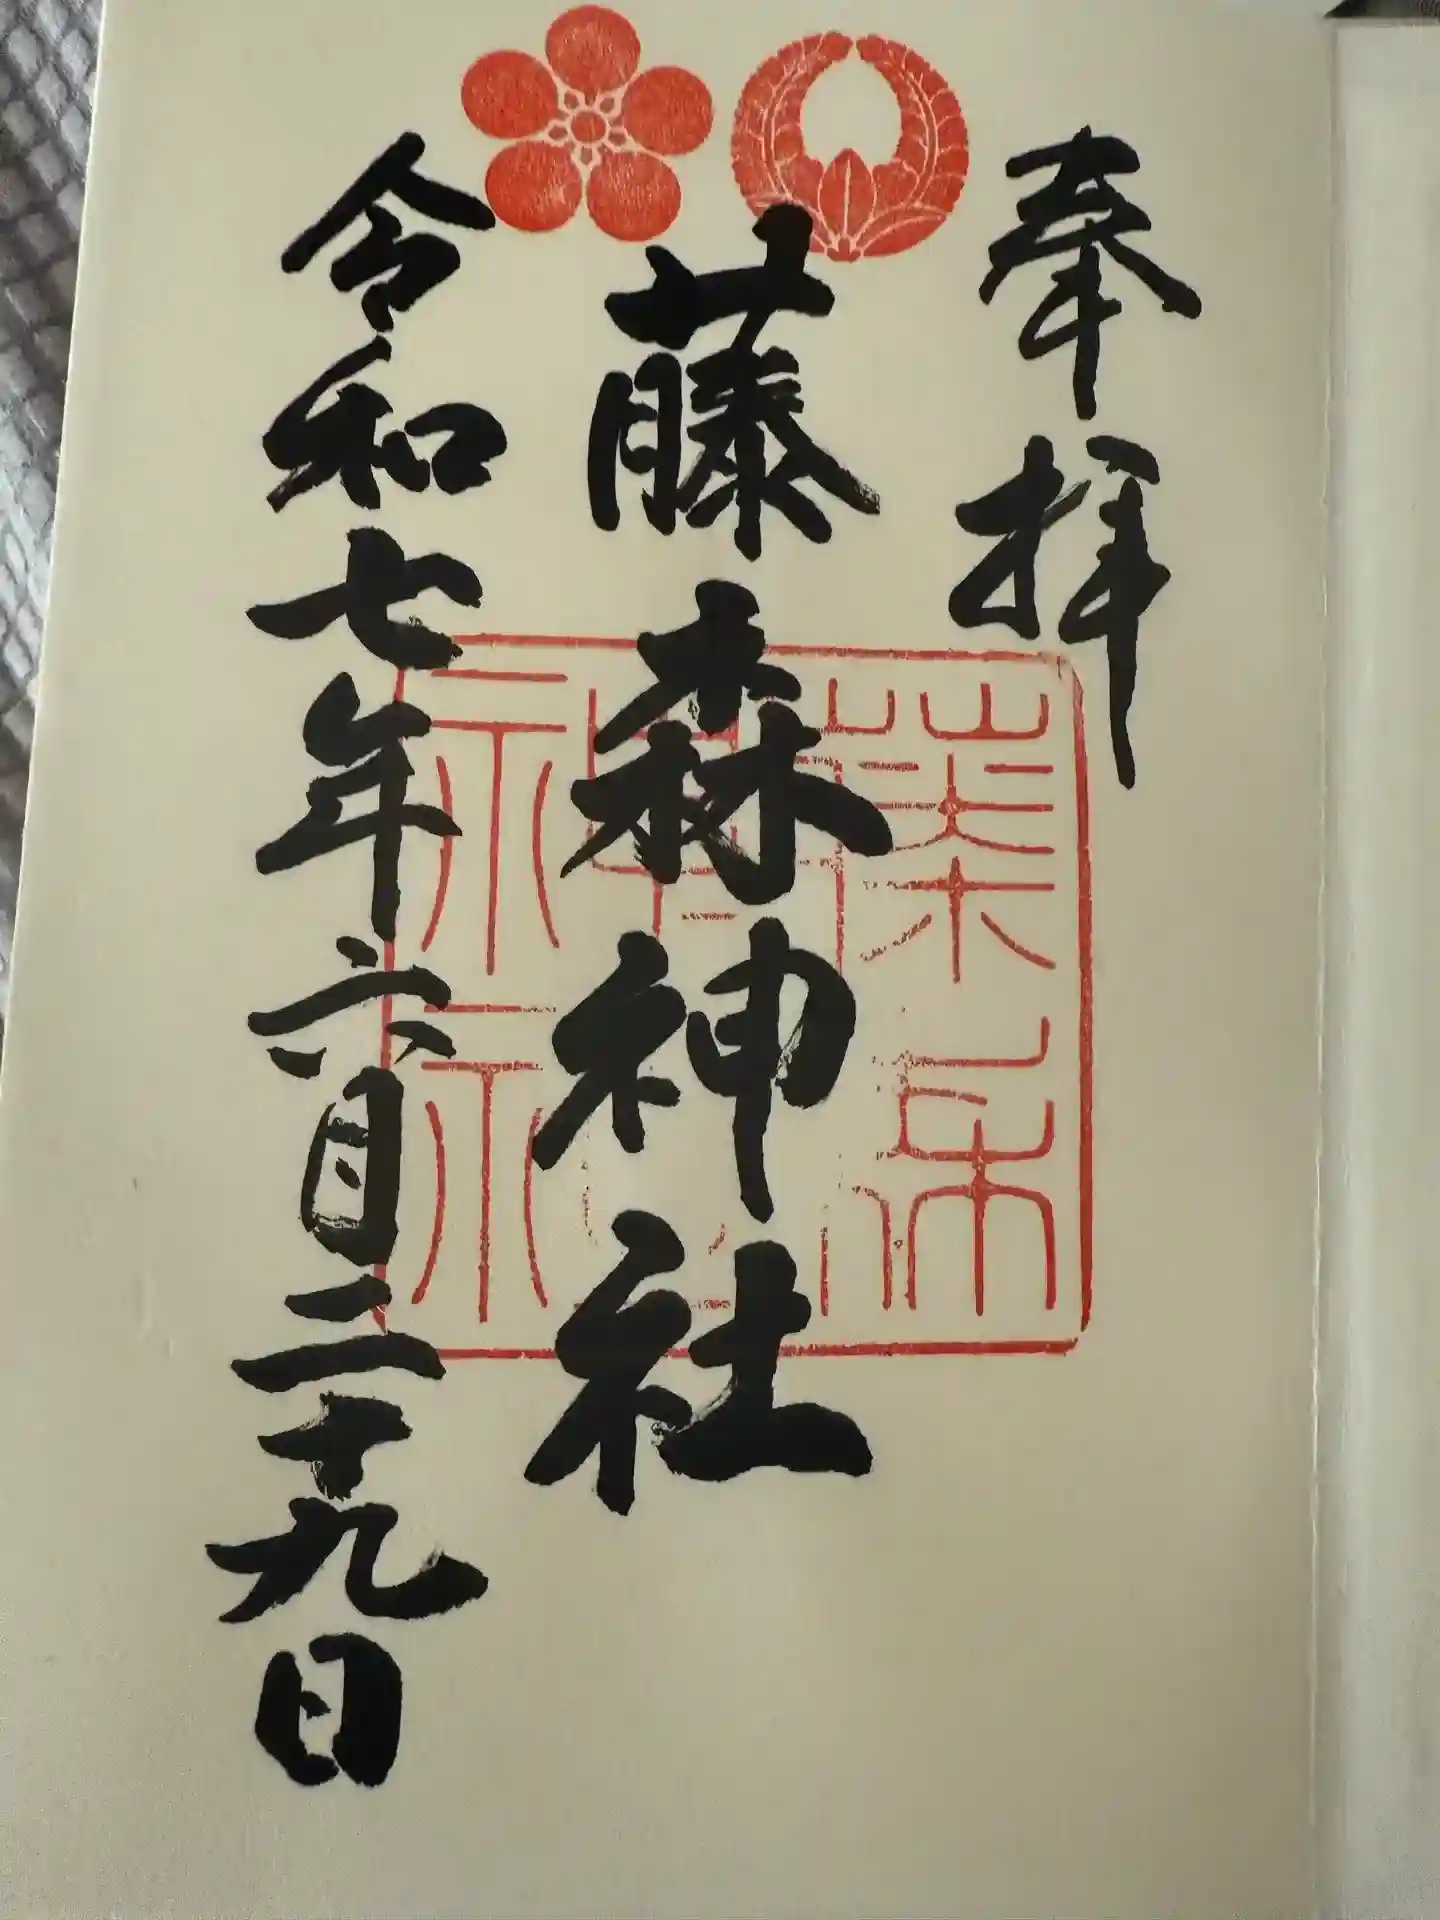 奉拝
藤森神社
令和七年六月二十九日